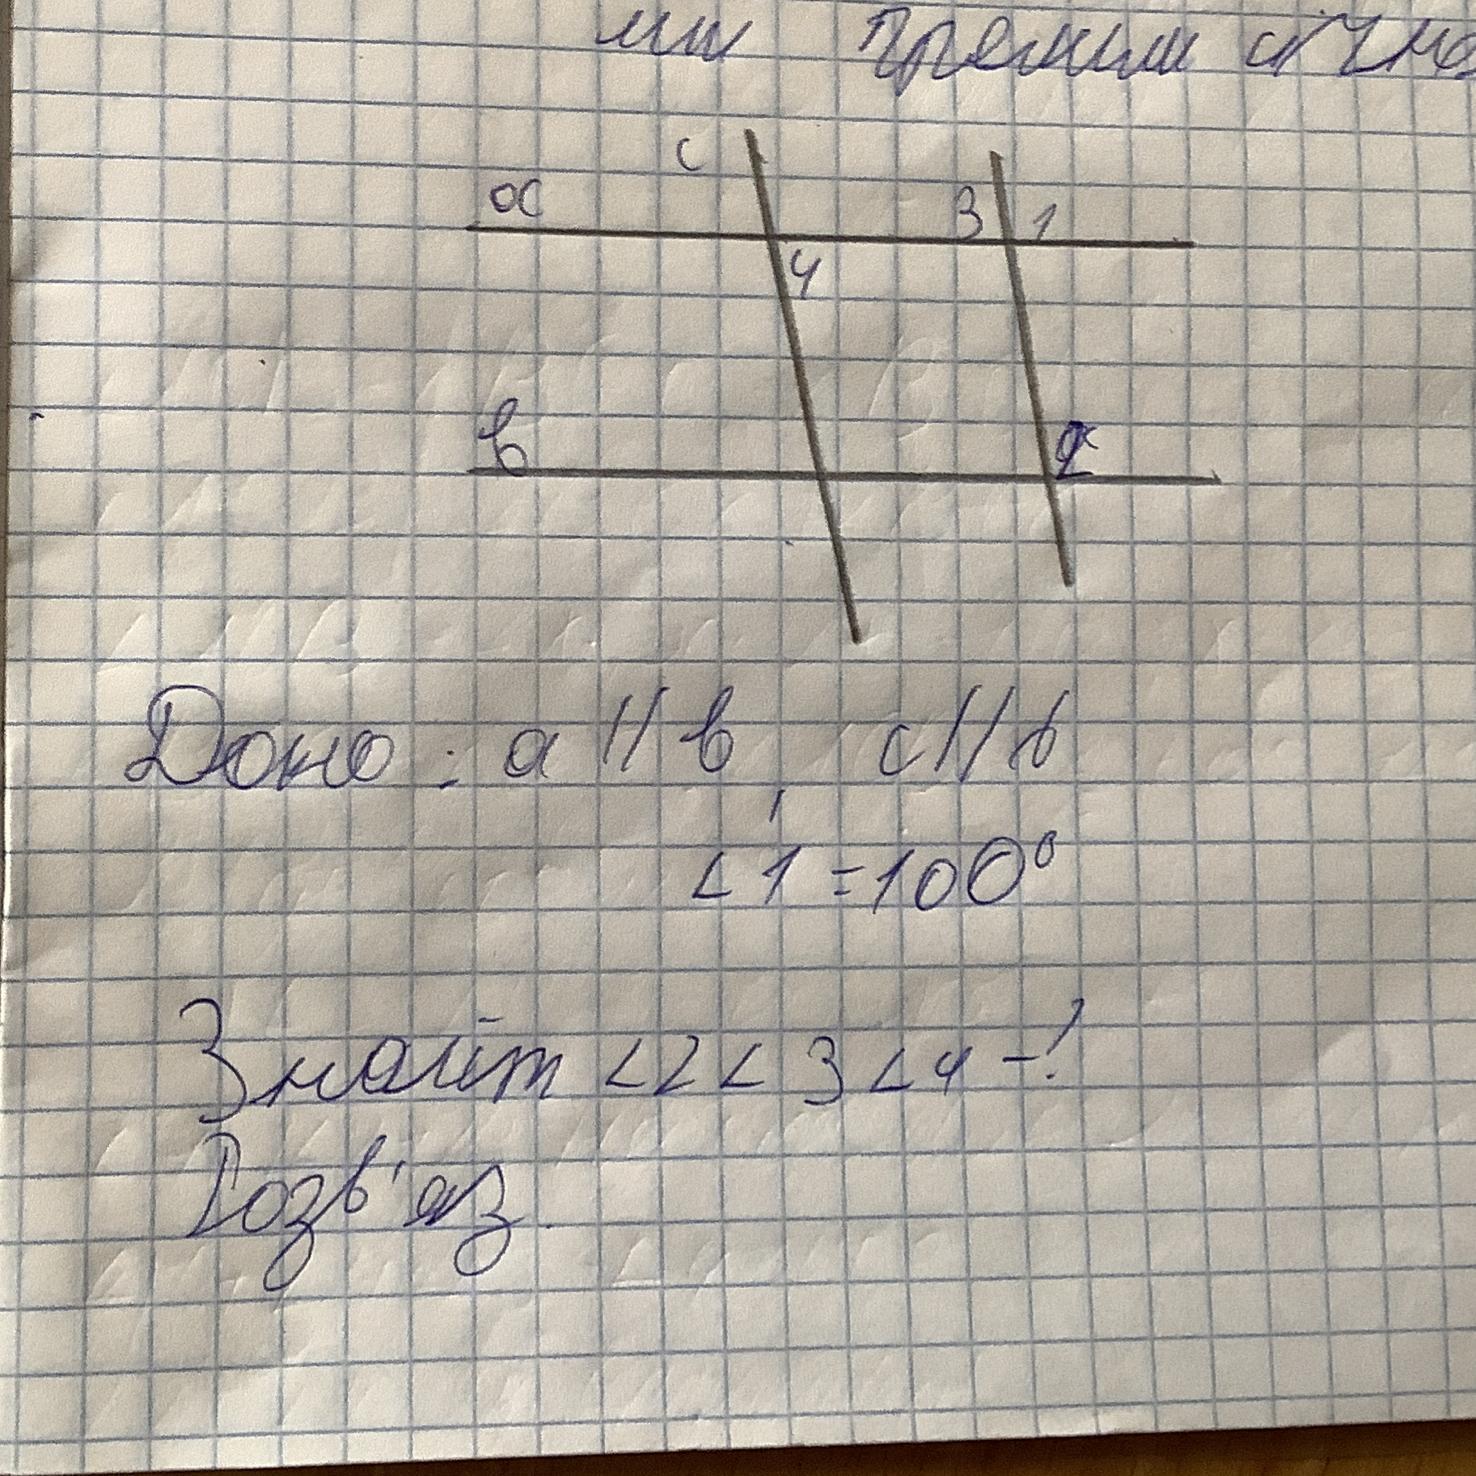 ми прямими січно
c
a 3 1
4
в 2
Доно: a || в, c || d
∠1 = 100°
Знайт ∠2 ∠3 ∠4 - ?
Розв'яз.